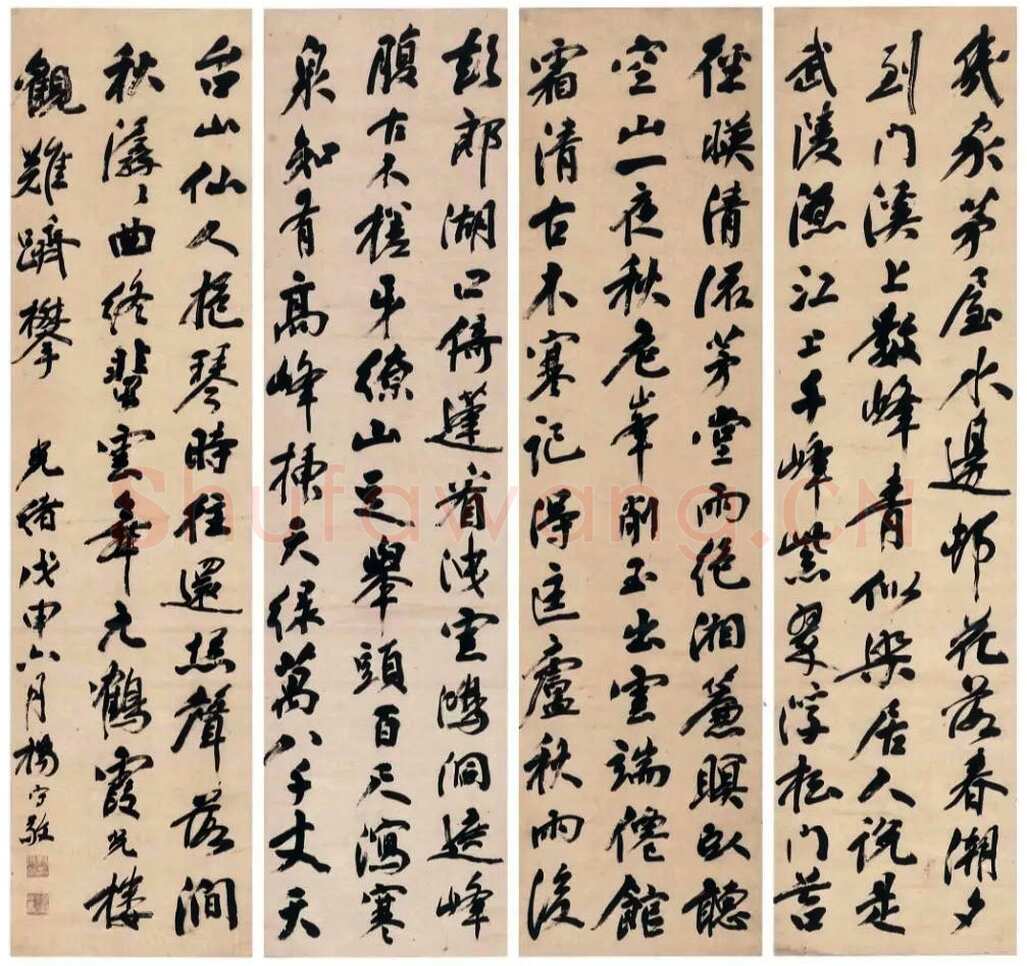 幾家茅屋水邊邨花落春潮夕
到門溪上數峰青似染居人說是
武陵源江上千峰紫翠浮松門苔
徑暎清流茅堂雨絕湘簾暝臥聽
空山一夜秋危峯削玉出雲端僊館
霜清古木寒記得匡廬秋雨後
彭郎湖口倚蓬看洩雲鴻洞遶峰
腹古木槎牙僚山足舉頭百尺瀉寒
泉知有高峰揀天綠萬八千丈天
台山仙人抱琴時往還撫聲落澗
秋潺潺曲終翡雲舞元鶴霞光樓
觀難躋攀 光緒戊申六月楊守敬
Shufawang.CN